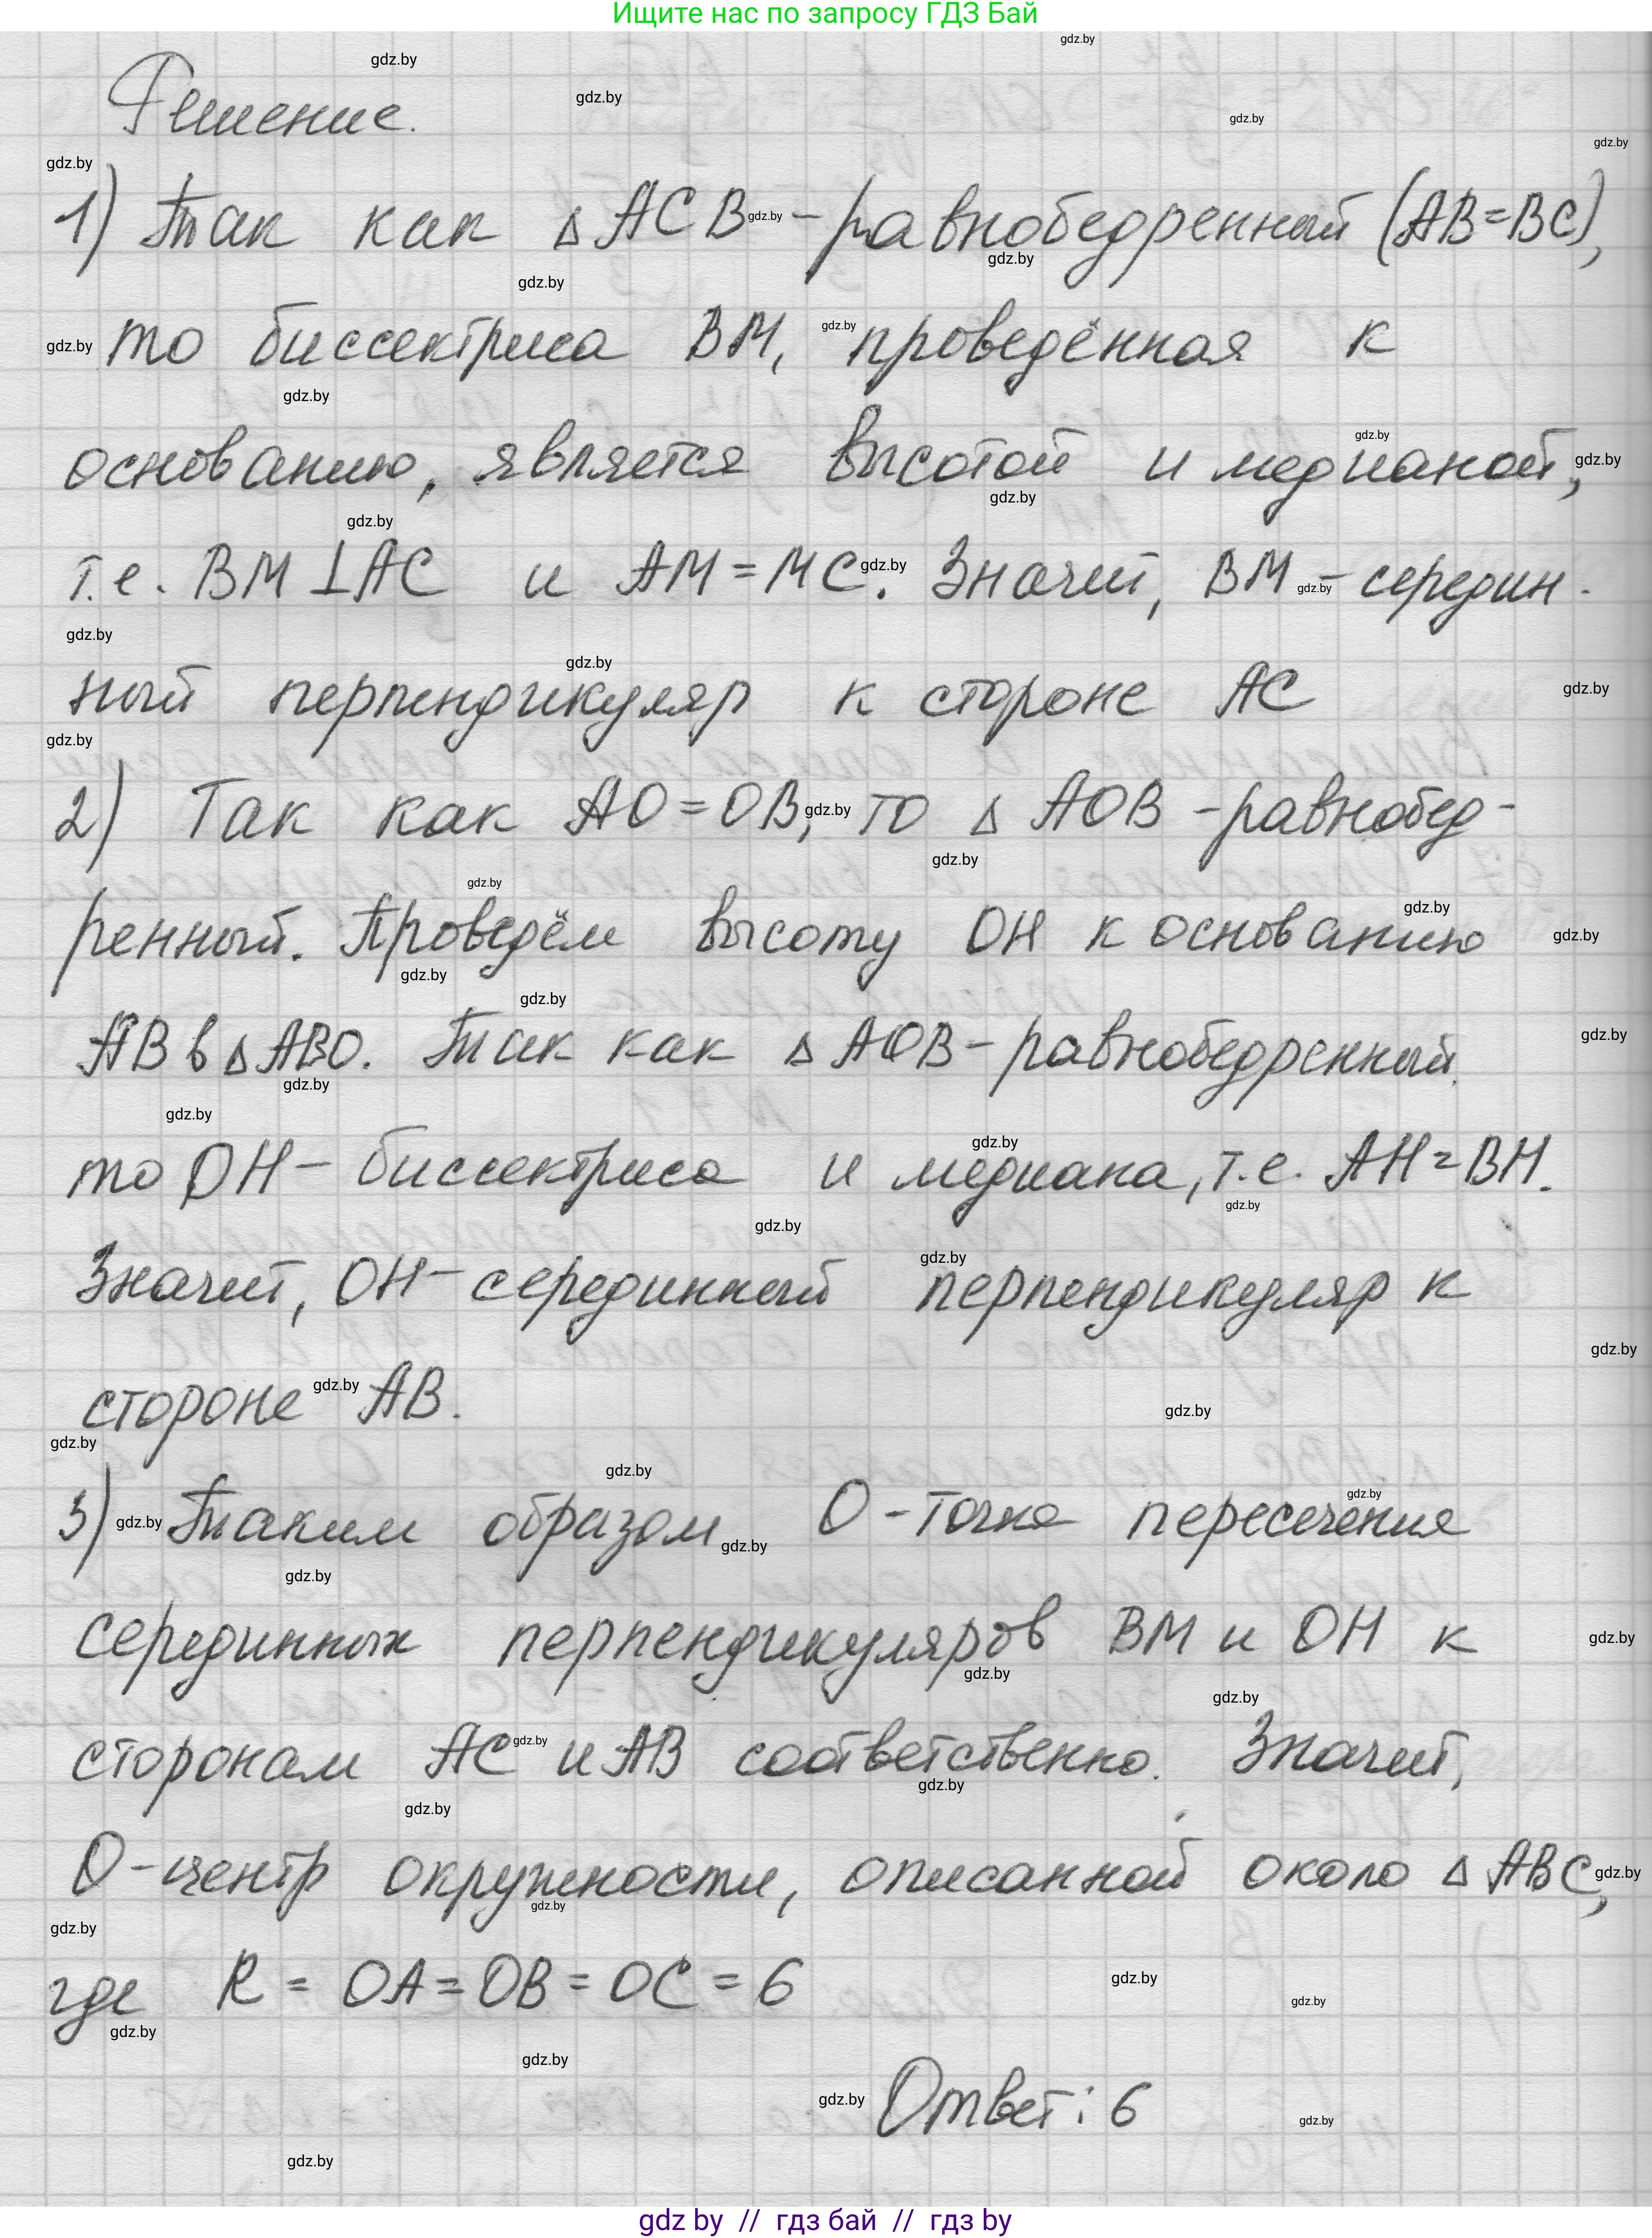 Ищите нас по запросу ГДЗ Бай
Решение.
1) Так как △ACB - равнобедренный (AB=BC),
то биссектриса BM, проведённая к
основанию, является высотой и медианой,
т.е. BM⊥AC и AM=MC. Значит, BM - середин-
ный перпендикуляр к стороне AC
2) Так как AO=OB, то △ AOB - равнобед-
ренный. Проведём высоту OH к основанию
AB в △ABO. Так как △ AOB - равнобедренный,
то OH - биссектриса и медиана, т.е. AH=BH.
Значит, OH - серединный перпендикуляр к
стороне AB.
3) Таким образом O - точка пересечения
серединных перпендикуляров BM и OH к
сторонам AC и AB соответственно. Значит,
O - центр окружности, описанной около △ ABC,
где R = OA = OB = OC = 6
Ответ: 6
gdz by // гдз бай // гдз by